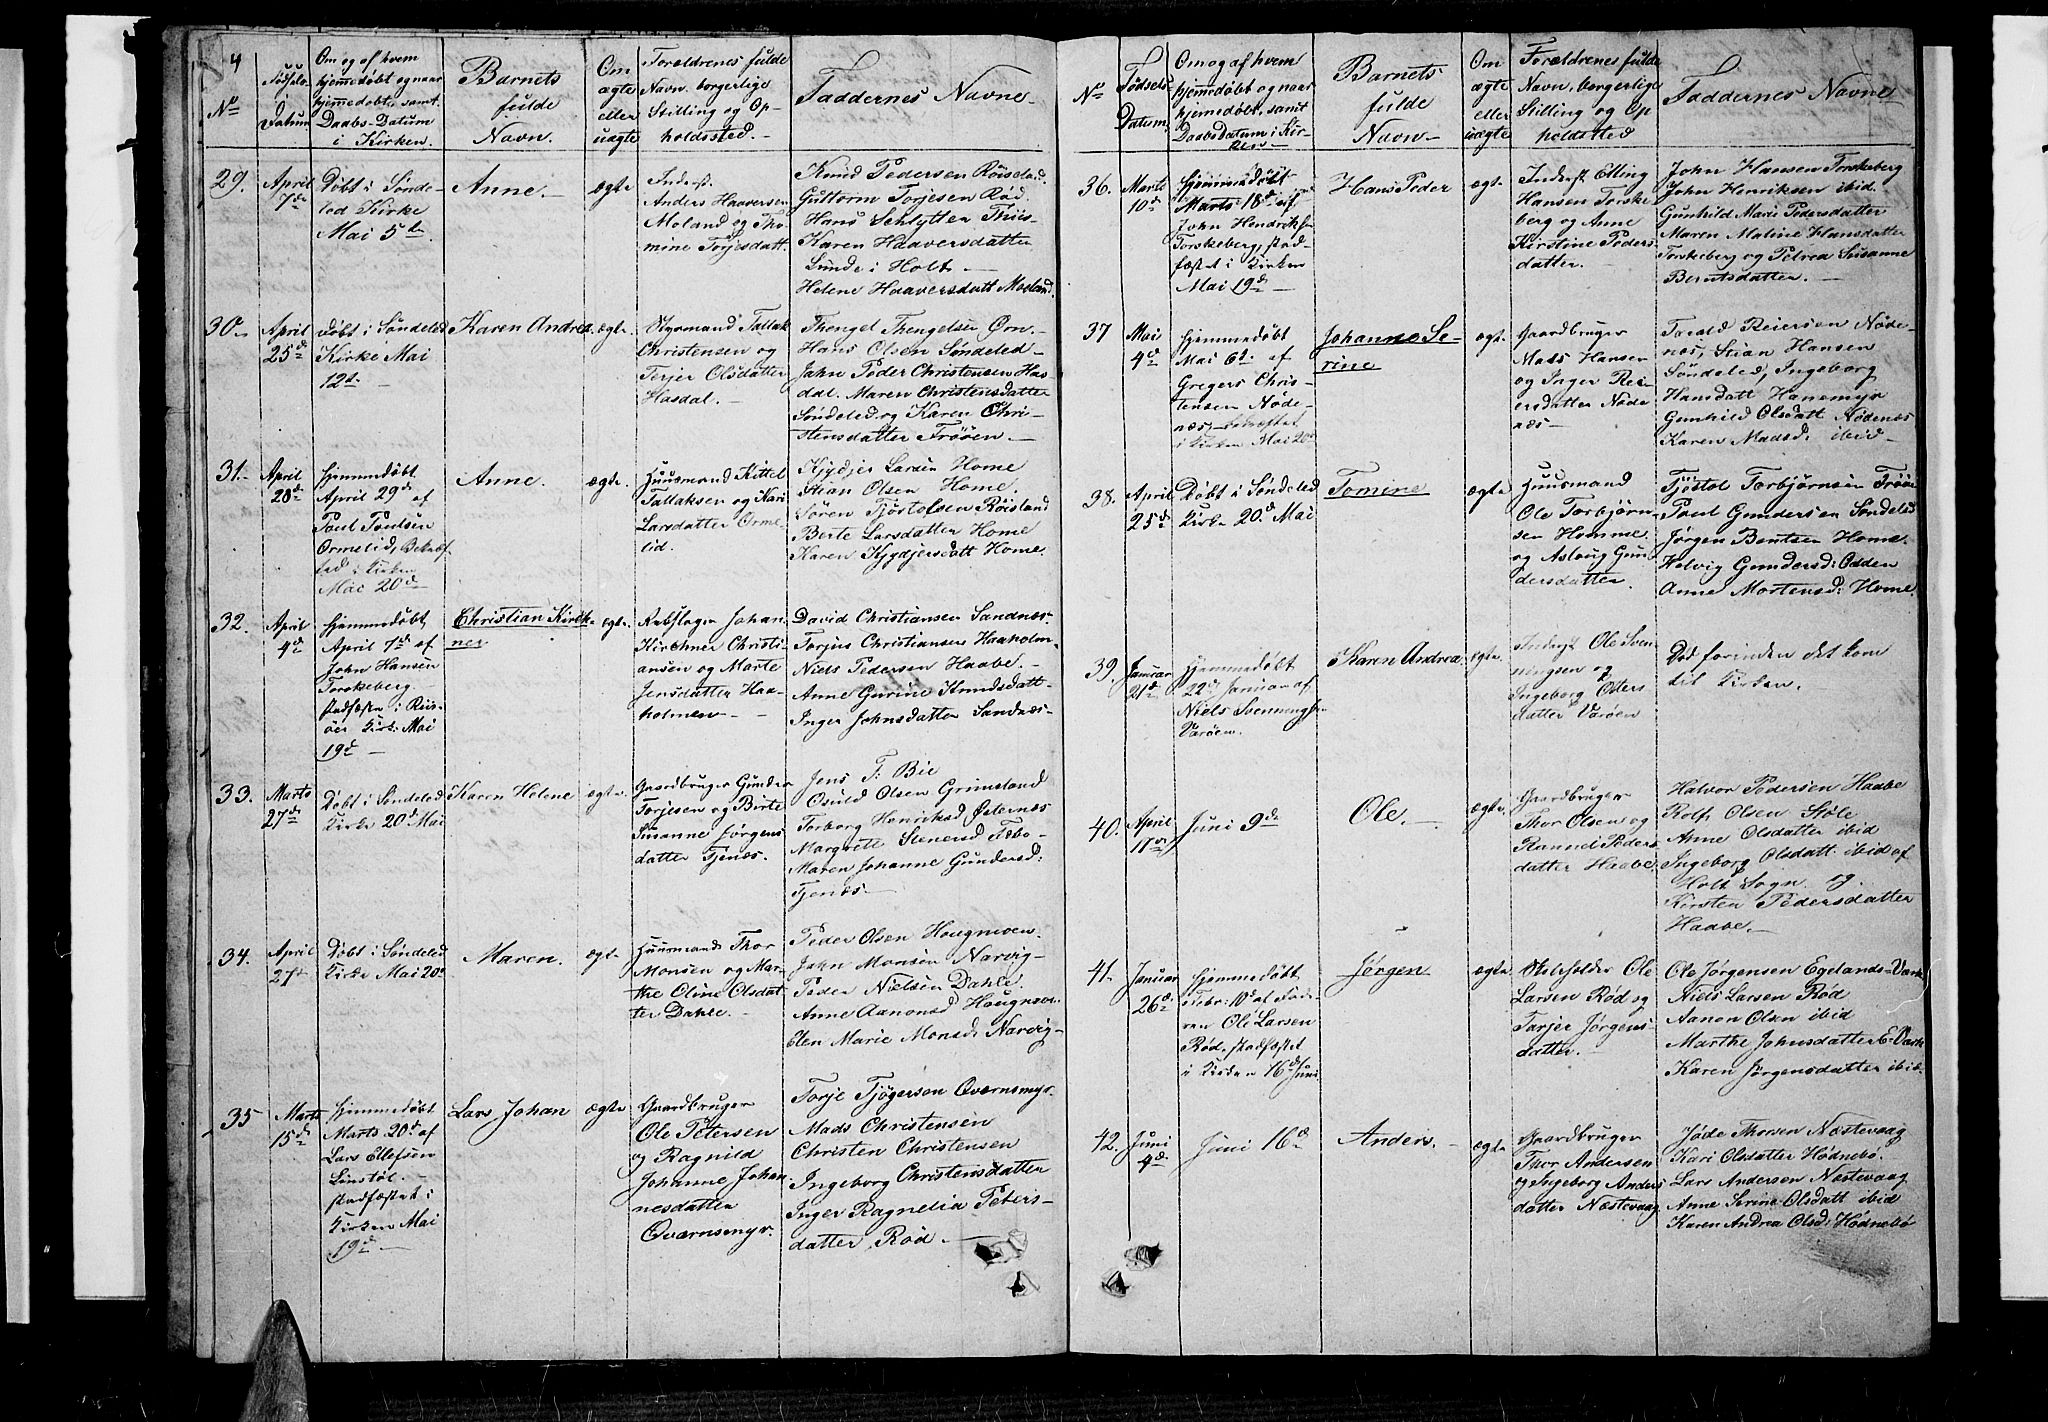 4
No
Fødsels-
Datum
Om og af hvem
hjemmedøbt og naar
hjemmedøbt, samt
Daabs-Datum
i Kirken.
Barnets
fulde
Navn.
Om
ægte
eller
uægte
Forældrenes fulde
Navn, borgerlige
Stilling og Op-
holdssted.
Faddernes Navne
29.
April
7de
Døbt i Sønde-
led Kirke
Mai 5te
Anne.
ægte
Inderst.
Anders Haaversen
Moland og Tho-
mine Torjesdatt.
Knud Pedersen
Guttorm Torjesen Rød.
Hans Schlytter
Karen Haaversdatter
Lunde i Holt
Helene Haaversdatt Moland.
30
April
25de
døbt i Søndeled
Kirke Mai
12te
Karen Andrea
ægte.
Styrmand Tallak
Christensen og
Terjer Olsdatter
Hasdal.
Thengel Thengelsen Ørn.
Hans Olsen Søndeled
Jahn Peder Christensen Has-
dal. Maren Christensdatter
Søndeled og Karen Chri-
stensdatter Trøen.
31.
April
28de
hjemmedøbt
April 29de af
Poul Poulsen
Ormelid,
i Kirken
Mai 20de
Anne.
ægte.
Huusmand Kittel
Tallaksen og Kari
Larsdatter Orme-
lid.
Kjydjer Larsen Home
Stian Olsen Home.
Søren Tjøstolsen Røisland
Berte Larsdatter Home
Karen Kjydjersdatt Home.
32.
April
4de
hjemmedøbt
April 7de af
John Hansen
Torskeberg.
stadfæstet i Riis-
øer Kirk: Mai
19de
Christian Kirch-
ner
ægte.
Johan
Kirchner Christi-
ansen og Marte
Jensdatter Haa-
holmen
David Christiansen Sandnæs
Torjus Christiansen Haaholm
Niels Pedersen Haabe.
Anne Gurine Knudsdatt
Inger Johnsdatter Sandnæs
33.
Marts
27de
Døbt i Søndeled
Kirke 20de Mai
Karen Helene
ægte.
Gaardbruger Gunder
Torjesen og Birte
Susanne Jørgens-
datter Tjenæs.
Jens T. Bie
Osuld Olsen Grimsland
Torborg Henriksd Østernæs
Margrete Stenersd
Maren Johanne Gundersd:
Tjenæs
34.
April
27de
Døbt i Søndeled
Kirke Mai 20de
Maren.
ægte
Huusmand Thor
Monsen og Mar-
the Oline Olsdat-
ter Dahle.
Peder Olsen Hougmoen.
John Monsen Narvig
Peder Nielsen Dahle.
Anne Aanonsd Hougmoen
Elen Marie Monsd: Narvig
35
Marts
15de
hjemmedøbt
Marts 20de af
Lars Ellefsen
Linstøl.
stadfæstet i
Kirken Mai
19de
Lars Johan
ægte
Gaardbruger
Ole Petersen
og Ragnild
Johanne Johan-
nesdatter
Qværnsmyr.
Torje Tjøgersen Qværnsmyr.
Mads Christensen
Christen Christensen
Ingeborg Christensdatter
Inger Ragnelia Peters-
datter, Rød
No
Fødsels
Datum.
Om og af hvem
hjemmedøbt og naar
hjemmedøbt samt
Daabsdatum i Kir-
ken
Barnets
fulde
Navn
Om
ægte
eller
uægte
Forældrenes fulde
Navn, borgerlige
Stilling og Op-
holdsted
Faddernes Navne
36.
Marts
10de
hjemmedøbt
Marts 18de af
John Hendriksen
Torskeberg, stad-
fæstet i Kirken
Mai 19de
Hans Peder
ægte
Inderst Elling
Hansen Torske-
berg og Anne
Kirstine Peders-
datter.
John Hansen Torskeberg
John Henriksen ibid.
Gunhild Marie Pedersdatter
Maren Maline Hansdatter
Torskeberg og Petrea Susanne
Berntsdatter.
37
Mai
4de
hjemmedøbt
Mai 6te af
Gregers Chris-
tensen Nøde-
næs,
i Kirken Mai 20de
Johanne Se-
rine
ægte
Gaardbruger
Mads Hansen
og Inger Rei-
ersdatter Nøde-
næs
Reiersen Nøde-
næs, Stian Hansen
Søndeled, Ingeborg
Hansdatt Hanemyr
Gunhild Olsdatt Nødenæs
Karen Madsd: ibid
38.
April
25de
Døbt i Søndeled
Kirke 20de Mai
Tomine
ægte
Huusmand
Ole Torbjørn-
sen Homme
og Aslaug Gun-
dersdatter.
Tjøstol Torbjørnsen Trøen
Poul Gundersen Søndeled
Jørgen Bentsen Home.
Helvig Gundersd: Odden
Anne Mortensd: Home.
39.
Januar
21de
hjemmedøbt
22de Januar af
Niels Svenningsen
Varøen.
Karen Andrea
ægte.
Inderst Ole Sven-
ningsen og
Ingeborg Osters-
datter Varøen
Død forinden det kom
til Kirken.
40.
April
17de
Juni 9de
Ole.
ægte.
Gaardbruger
Thor Olsen og
Rannei Peders-
datter Haabe.
Halvor Pedersen Haabe
Rolf Olsen Støle
Anne Olsdatter ibid
Ingeborg Olsdatt. ibid af
Holt Sogn. og
Kirsten Pedersdatter
Haabe.
41.
Januar
26de
hjemmedøbt
Febr: 10de af Fade-
ren Ole Larsen
Rød, stadfæstet
i Kirken 16de Juni
Jørgen
ægte
Ole
Larsen Rød og
Tarjer Jørgens-
datter.
Ole Jørgensen Egelands-Værk
Niels Larsen Rød
Aanon Olsen ibid
Marthe Johnsdatter E-Værk
Karen Jørgensdatter ibid.
42.
Juni
4de
Juni 16de
Anders.
ægte
Gaardbruger
Thor Andersen
og Ingeborg Anders-
datter Næstevaag
Jøde Thorsen Næstevaag
Kari Olsdatter Hødnebø.
Lars Andersen Næstevaag
Anne Serine Olsdatt ibid
Karen Andrea Olsd: Hødnebø